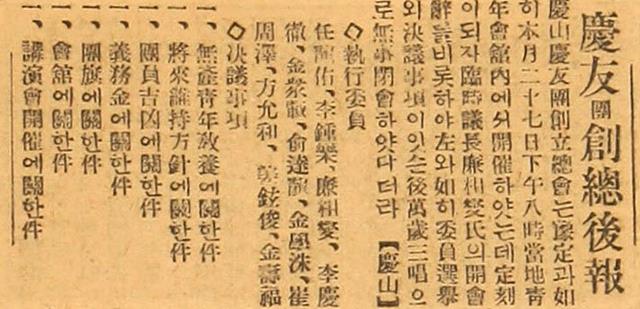 慶友團創總後報
慶山慶友團創立總會는豫定과如
히本月二十七日下午八時當地靑
年會館內에서開催하얏는데定刻
이되자臨時議長廉相燮氏의開會
辭를비롯하야左와如히委員選擧
와決議事項이잇슨後萬歲三唱으
로無事閉會하얏다더라 【慶山】
◇執行委員
任 佑、李鍾樂、廉相燮、李慶
徽、金 、俞達 、金 洙、崔
周澤、方允和、 鉉俊、金壽福
◇決議事項
一、無產靑年敎養에關한件
一、將來維持方針에關한件
一、團員吉凶에關한件
一、義務金에關한件
一、團旗에關한件
一、會館에關한件
一、講演會開催에關한件